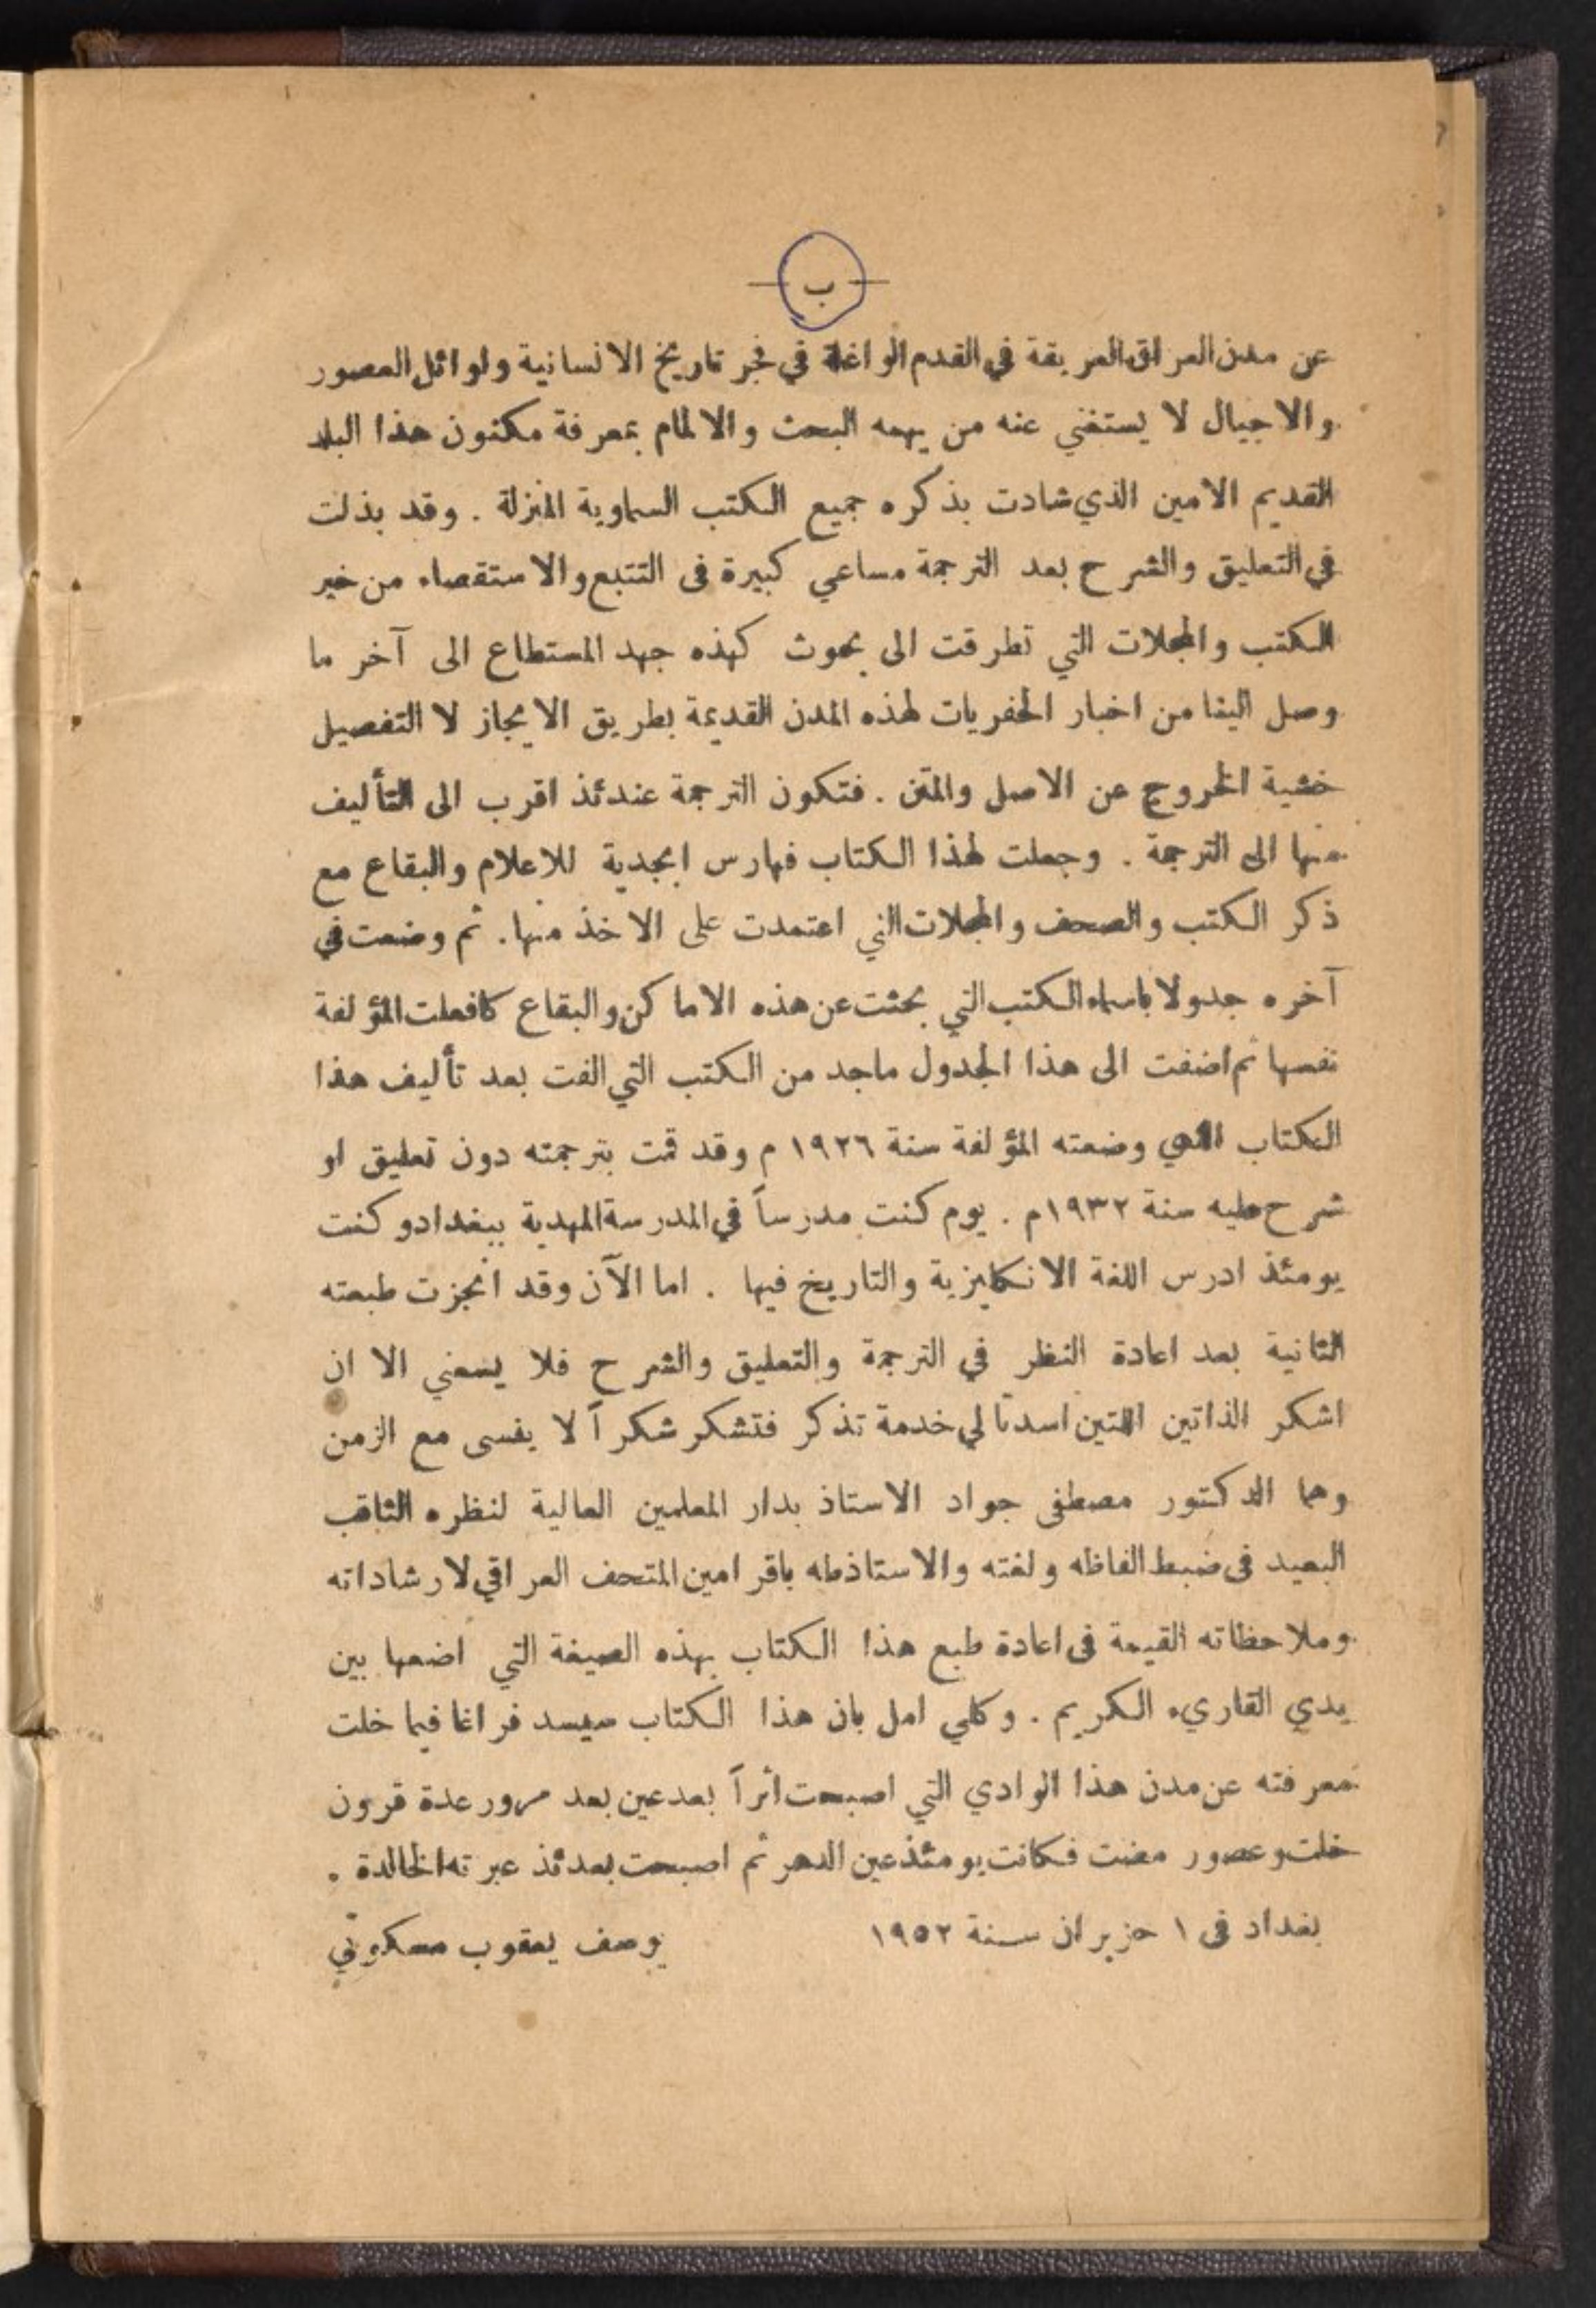 — ب —
عن مدن العراق العريقة في القدم الواغلة في فجر تاريخ الانسانية واوائل العصور
والاجيال لا يستغني عنه من يهمه البحث والالمام بمعرفة مكنون هذا البلد
القديم الامين الذي شادت بذكره جميع الكتب السماوية المنزلة . وقد بذلت
في التعليق والشرح بعد الترجمة مساعي كبيرة فى التتبع والاستقصاء من خير
الكتب والمجلات التي تطرقت الى بحوث كهذه جهد المستطاع الى آخر ما
وصل الينا من اخبار الحفريات لهذه المدن القديمة بطريق الايجاز لا التفصيل
خشية الخروج عن الاصل والمتن . فتكون الترجمة عندئذ اقرب الى التأليف
منها الى الترجمة . وجعلت لهذا الكتاب فهارس ابجدية للاعلام والبقاع مع
ذكر الكتب والصحف والمجلات التي اعتمدت على الاخذ منها. ثم وضعت في
آخره جدولا باسماء الكتب التي بحثت عن هذه الاماكن والبقاع كما فعلت المؤلفة
نفسها ثم اضفت الى هذا الجدول ماجد من الكتب التي الفت بعد تأليف هذا
الكتاب الذي وضعته المؤلفة سنة ١٩٢٦ م وقد قمت بترجمته دون تعليق او
شرح عليه سنة ١٩٣٢م . يوم كنت مدرساً في المدرسة المهدية ببغداد وكنت
يومئذ ادرس اللغة الانكليزية والتاريخ فيها . اما الآن وقد انجزت طبعته
الثانية بعد اعادة النظر في الترجمة والتعليق والشرح فلا يسعني الا ان
اشكر الذاتين اللتين اسدتا لي خدمة تذكر فتشكر شكراً لا ينسى مع الزمن
وهما الدكتور مصطفى جواد الاستاذ بدار المعلمين العالية لنظره الثاقب
البعيد فى ضبط الفاظه ولغته والاستاذ طه باقر امين المتحف العراقي لارشاداته
وملاحظاته القيمة فى اعادة طبع هذا الكتاب بهذه الصيغة التي اضعها بين
يدي القاريء الكريم . وكلي امل بان هذا الكتاب سيسد فراغا فيما خلت
معرفته عن مدن هذا الوادي التي اصبحت أثراً بعد عين بعد مرور عدة قرون
خلت وعصور مضت فكانت يومئذ عين الدهر ثم اصبحت بعدئذ عبرته الخالدة .
بغداد فى ١ حزيران سنة ١٩٥٢ يوسف يعقوب مسكوني